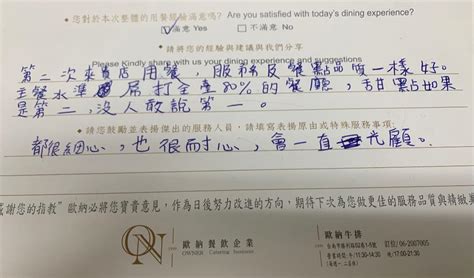 • 您對於本次整體的用餐經驗滿意嗎? Are you satisfied with today's dining experience?
☑滿意 Yes □不滿意 No
• 請將您的經驗與建議與我們分享
Please Kindly share with us your dining experience and suggestions
第二次來貴店用餐,服務及餐點品質一樣好。
主餐水準屌打全臺80%的餐廳,甜點如果
是第二,沒人敢說第一。
• 請您鼓勵並表揚傑出的服務人員,請填寫表揚原由或特殊服務事項:
都很細心,也很耐心,會一直光顧。
感謝您的指教"歐納必將您寶貴意見,作為日後努力改進的方向,期待下次為您做更佳的服務品質與精緻美
ON
歐納餐飲企業
OWNER Catering Business
歐納牛排
訂位:06-2007005